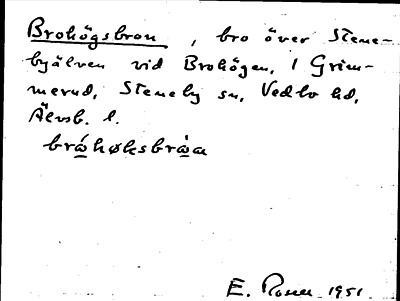 Brohögsbron, bro över Stene-
byälven vid Brohögen, i Grim-
merud, Steneby sn, Vedbo hd,
Älvsb. l.
bråhøksbråa
E. Rosell 1951